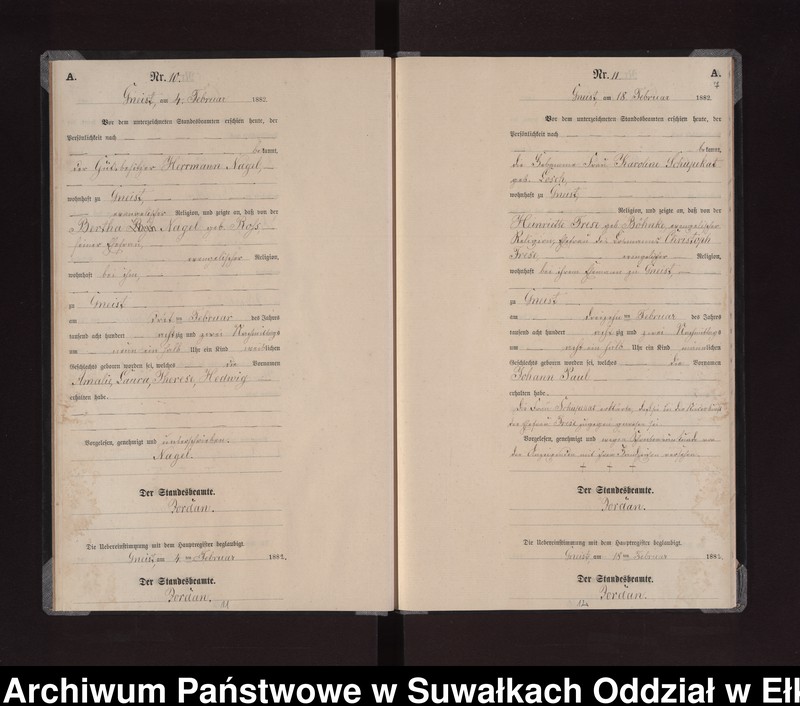 A.
Nr. 10.
Gneist, am 4. Februar 1882.
Vor dem unterzeichneten Standesbeamten erschien heute, der
Persönlichkeit nach
bekannt,
der Gutsbesitzer Herrmann Nagel,
wohnhaft zu Gneist,
evangelischer Religion, und zeigte an, daß von der
Bertha Nagel geb. Ross
seiner Ehefrau,
evangelischer Religion,
wohnhaft bei ihm,
zu Gneist
am dritten Februar des Jahres
tausend acht hundert achtzig und zwei Nachmittags
um neun ein halb Uhr ein Kind weiblichen
Geschlechts geboren worden sei, welches die Vornamen
Laura, Therese Hedwig
erhalten habe.
Vorgelesen, genehmigt und unterschrieben.
Nagel.
Der Standesbeamte.
Jordan.
Die Uebereinstimmung mit dem Hauptregister beglaubigt.
Gneist, am 4ten Februar 1882.
Der Standesbeamte.
Jordan.
11
Nr. 11.
A.
7
Gneist, am 18. Februar 1882.
Vor dem unterzeichneten Standesbeamten erschien heute, der
Persönlichkeit nach
bekannt,
die Hebamme Frau Karoline
geb. Losch,
wohnhaft zu Gneist,
Religion, und zeigte an, daß von der
Henriette Frese geb. Böhnke, evangelischer
Religion, Ehefrau des Christoph
Frese evangelischer Religion,
wohnhaft bei ihrem Ehemann zu Gneist
zu Gneist
am dreizehnten Februar des Jahres
tausend acht hundert achtzig und zwei Nachmittags
um acht ein halb Uhr ein Kind männlichen
Geschlechts geboren worden sei, welches die Vornamen
Johann Paul
erhalten habe.
Die Frau erklärte, daß sie bei der Niederkunft
der Ehefrau Frese zugegen gewesen sei
Vorgelesen, genehmigt und wegen Schreibensunkunde von
der Anzeigenden mit ihrem Handzeichen versehen.
+ + +
Der Standesbeamte.
Jordan.
Die Uebereinstimmung mit dem Hauptregister beglaubigt.
Gneist, am 18ten Februar 1882.
Der Standesbeamte.
Jordan.
Archiwum Państwowe w Suwałkach Oddział w Ełk